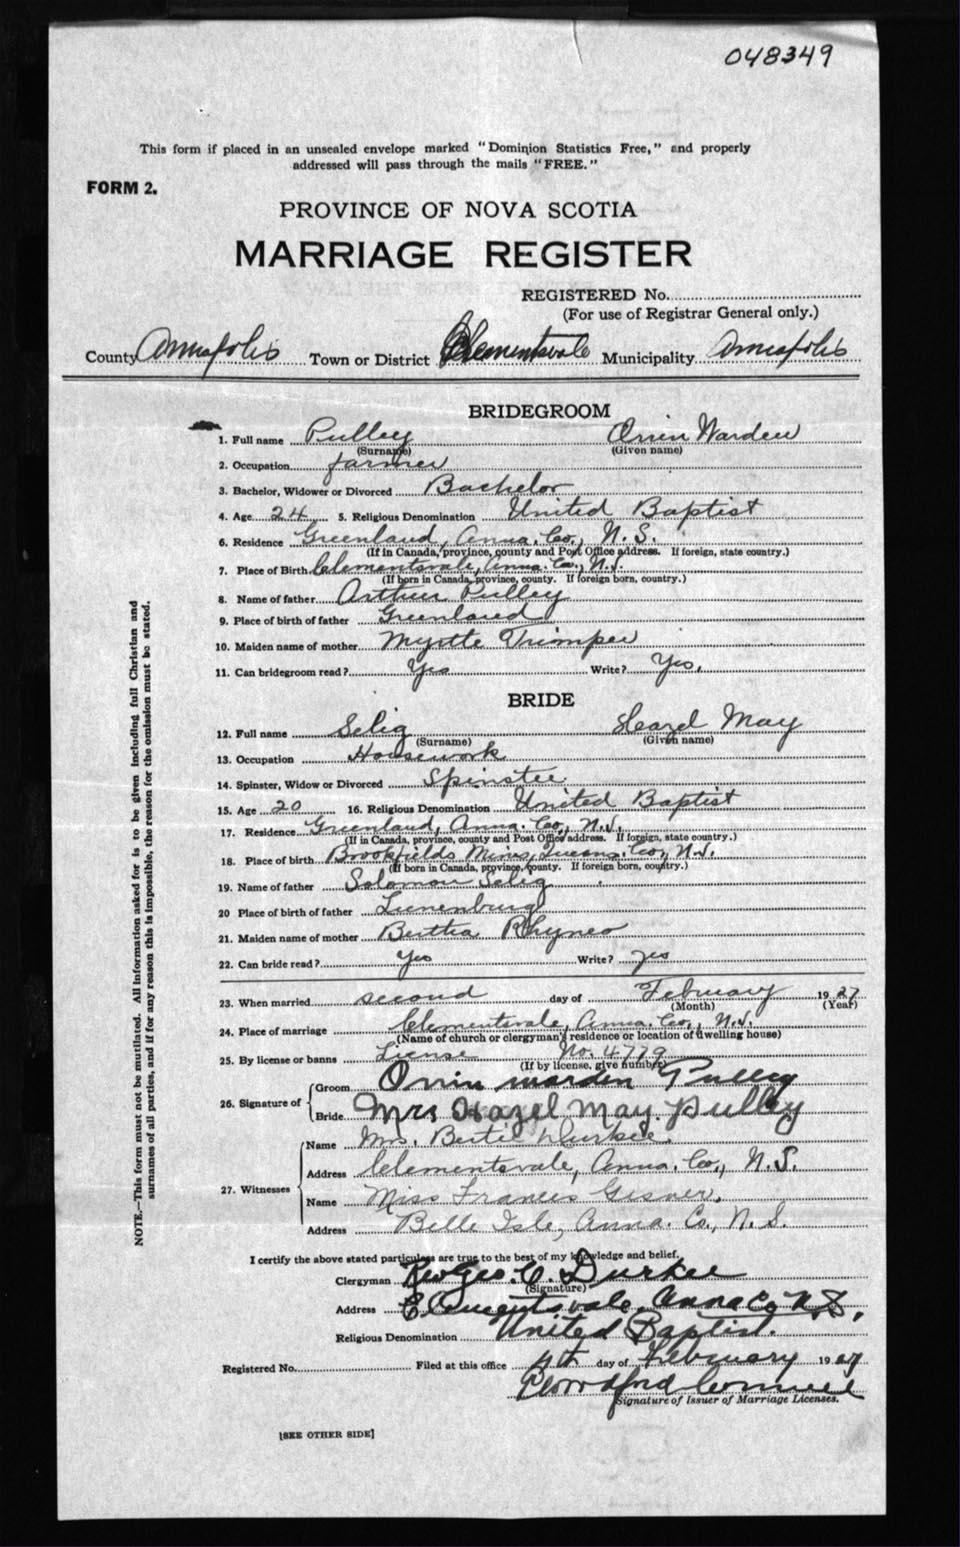 048349
This form if placed in an unsealed envelope marked "Dominion Statistics Free," and properly
addressed will pass through the mails "FREE."
FORM 2.
PROVINCE OF NOVA SCOTIA
MARRIAGE REGISTER
REGISTERED No.
(For use of Registrar General only.)
County Annapolis Town or District Clementsvale Municipality Annapolis
BRIDEGROOM
1. Full name Pulley Orin Warden
(Surname) (Given name)
2. Occupation farmer
3. Bachelor, Widower or Divorced Bachelor
4. Age 24 5. Religious Denomination United Baptist
6. Residence Greenland, Anna. Co., N.S.
(If in Canada, province, county and Post Office address. If foreign, state country.)
7. Place of Birth Clementsvale, Anna. Co., N.S.
(If born in Canada, province, county. If foreign born, country.)
8. Name of father Arthur Pulley
9. Place of birth of father Greenland
10. Maiden name of mother Myrtle Trimper
11. Can bridegroom read? Yes Write? Yes.
BRIDE
12. Full name Selig Hazel May
(Surname) (Given name)
13. Occupation Housework
14. Spinster, Widow or Divorced Spinster
15. Age 20 16. Religious Denomination United Baptist
17. Residence Greenland, Anna. Co., N.S.
(If in Canada, province, county and Post Office address. If foreign, state country.)
18. Place of birth Brookfields Mines, Queens. Co., N.S.
(If born in Canada, province, county. If foreign born, country.)
19. Name of father Solomon Selig
20 Place of birth of father Lunenburg
21. Maiden name of mother Bertha Rhyneo
22. Can bride read? Yes Write? Yes
23. When married second day of February 1927
(Month) (Year)
24. Place of marriage Clementsvale, Anna. Co., N.S.
(Name of church or clergyman's residence or location of dwelling house)
25. By license or banns License No. 4779
(If by license, give number)
26. Signature of
Groom Orrin Warden Pulley
Bride Mrs Hazel May Pulley
27. Witnesses
Name Mrs. Bertie Durkee.
Address Clementsvale, Anna. Co., N.S.
Name Miss Frances Gesner.
Address Belle Isle, Anna. Co., N.S.
I certify the above stated particulars are true to the best of my knowledge and belief.
Clergyman Rev Geo. C. Durkee
(Signature)
Address Clementsvale, Anna Co N.S.
Religious Denomination United Baptist.
Registered No. Filed at this office 4th day of February 1927
Signature of Issuer of Marriage Licenses.
[SEE OTHER SIDE]
NOTE.—This form must not be mutilated. All information asked for is to be given including full Christian and
surnames of all parties, and if for any reason this is impossible, the reason for the omission must be stated.